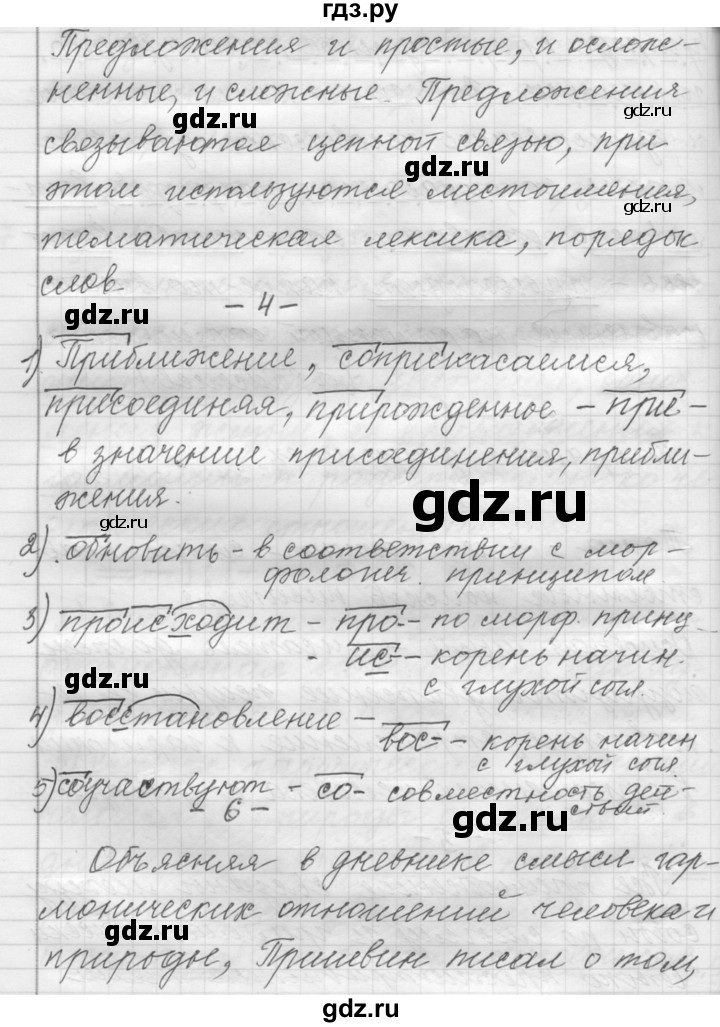 гдз.ру
Предложения и простые, и ослож-
ненные, и сложные. Предложения
gdz.ru
gdz.ru
связываются цепной связью, при
gdz.ru
этом используются местоимения,
gdz.ru
тематическая лексика, порядок
слов
gdz.ru
- 4 -
1) Приближение, соприкасаемся,
присоединяя, прирожденное - при-
в значении присоединения, прибли-
жения.
gdz.ru
gdz.ru
2) обновить - в соответствии с мор-
фологич. принципом.
3) происходит - про- - по морф. принц.
- ис- - корень начин.
с глухой согл.
gdz.ru
4) восстановление -
вос- - корень начин
с глухой согл.
gdz.ru
5) соучаствуют - со- совместность дей-
ствий.
- 6 -
gdz.ru
Объясняя в дневнике смысл гар-
монических отношений человека и
gdz.ru
природы, Пришвин писал о том,
gdz.ru
gdz.ru